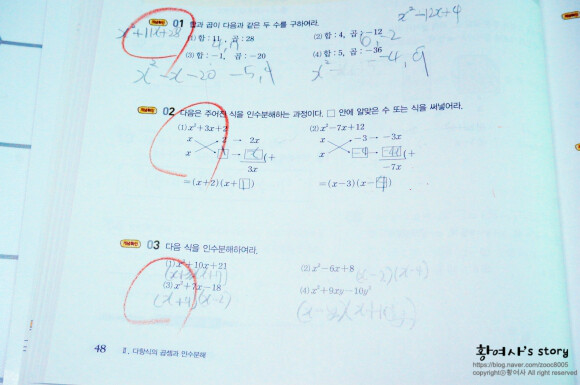 x²-12x+4
개념확인 01 합과 곱이 다음과 같은 두 수를 구하여라.
x²+11x+28
(1) 합 : 11, 곱 : 28 (2) 합 : 4, 곱 : -12
6, -2
(3) 합 : -1, 곱 : -20 (4) 합 : 5, 곱 : -36
x²-x-20 -5, 4 x²- -4, 9
개념확인 02 다음은 주어진 식을 인수분해하는 과정이다. □ 안에 알맞은 수 또는 식을 써넣어라.
(1) x²+3x+2 (2) x²-7x+12
x 2 → 2x x -3 → -3x
x 1 → x (+ x -4 → -4x (+
3x -7x
=(x+2)(x+1) =(x-3)(x-4)
개념확인 03 다음 식을 인수분해하여라.
(1) x²+10x+21 (2) x²-6x+8 (x-2)(x-4)
(x+3)(x+7)
(3) x²+7x-18 (4) x²+9xy-10y²
(x+9)(x-2)
48 Ⅱ. 다항식의 곱셈과 인수분해
황여사's story
http://blog.naver.com/zooc8005
copyrightⓒ황여사 All right reserved